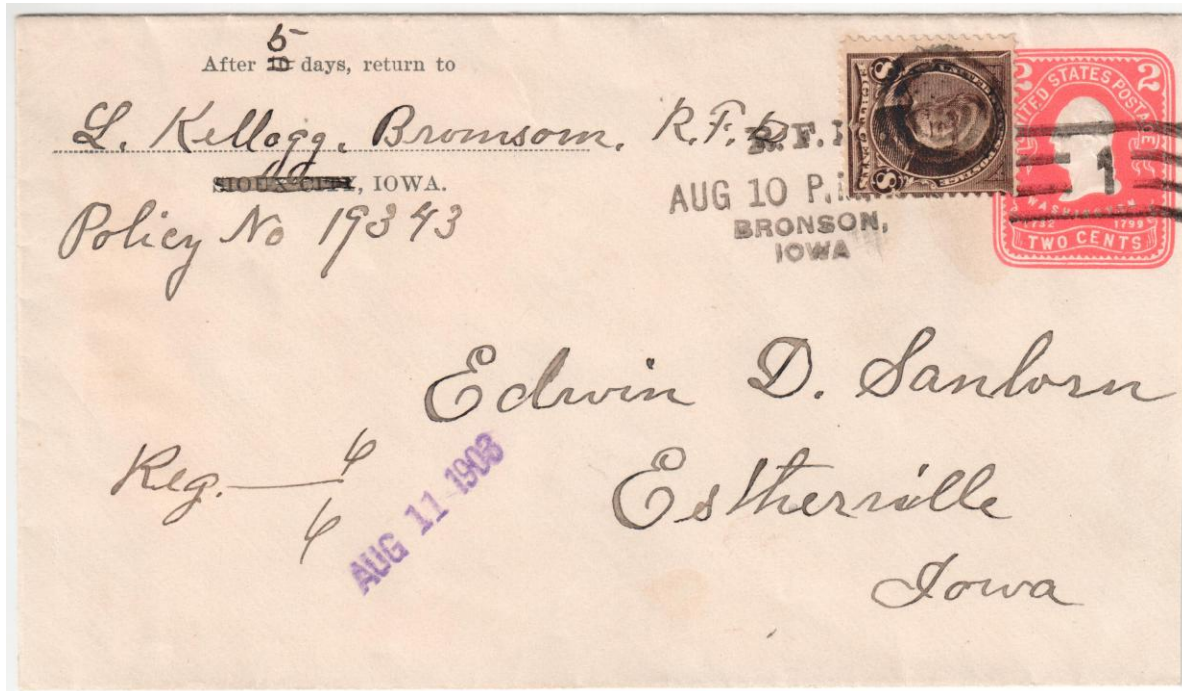 5
After 10 days, return to
L. Kellogg. Bromsom. R.F.D.
SIOUX CITY, IOWA.
Policy No 19343
R. F.
AUG 10 P.M.
BRONSON,
IOWA
8 8
2 2
UNITED STATES POSTAGE
1
WASHINGTON
1732 1799
TWO CENTS
Edwin D. Sanborn
Estherville
Iowa
Reg. 4
4
AUG 11 1903